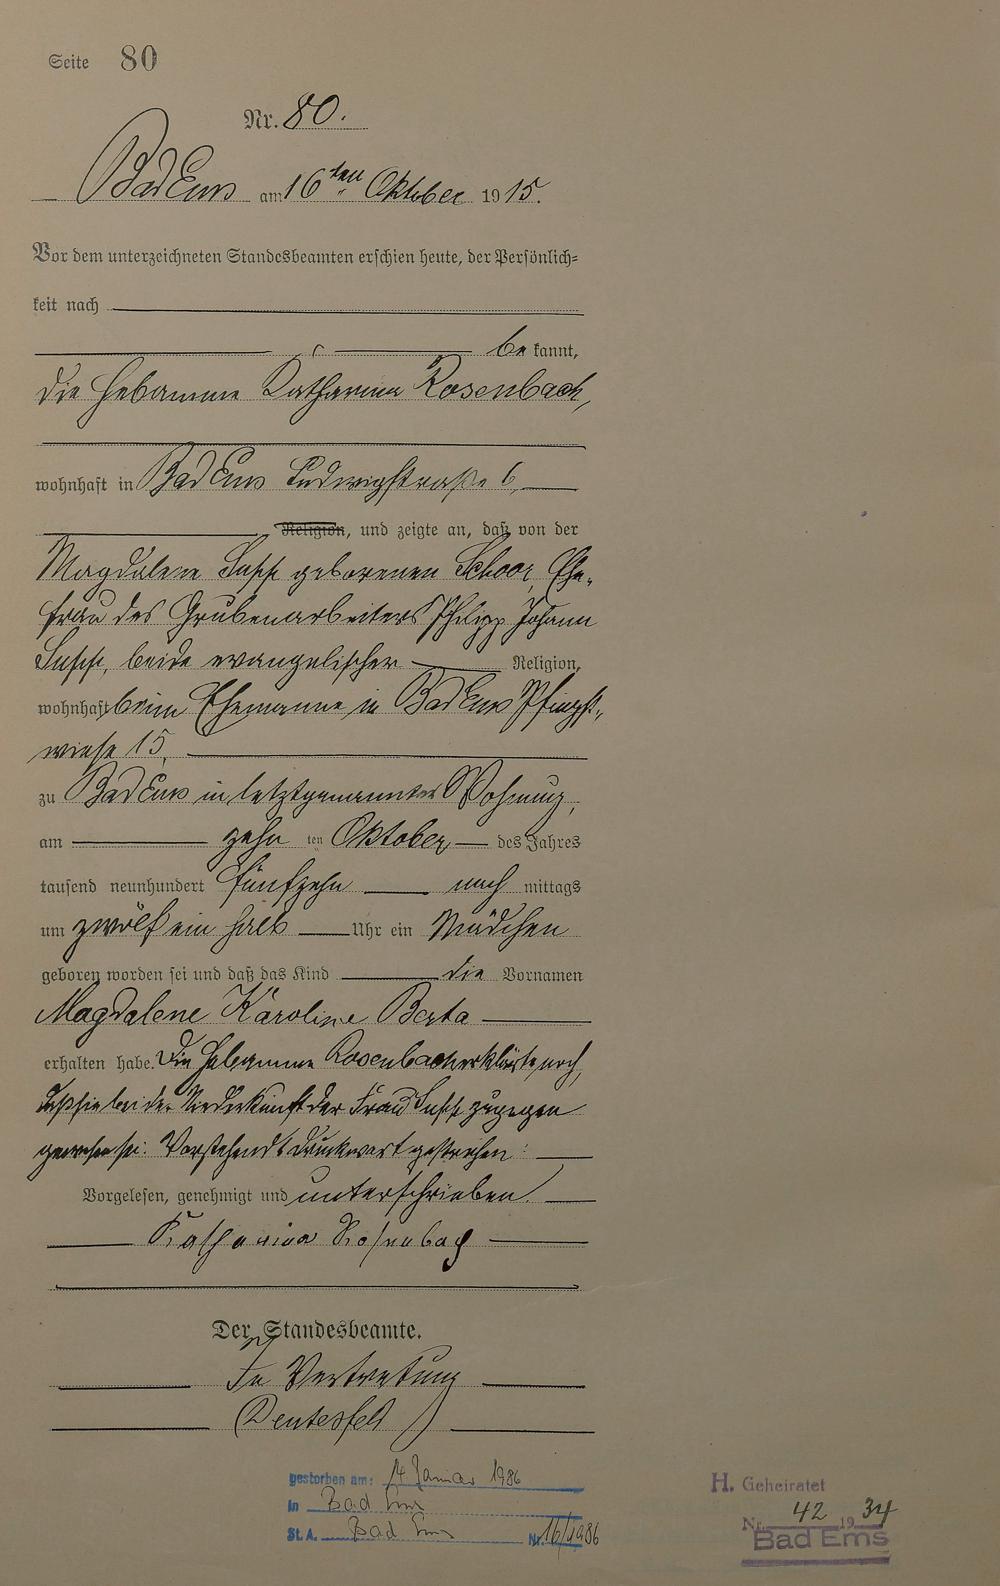 Seite 80
Nr. 80.
Bad Ems am 16ten Oktober 1915.
Vor dem unterzeichneten Standesbeamten erschien heute, der Persönlich=
keit nach
be kannt,
die Hebamme Katharina Rosenbach,
wohnhaft in Bad Ems Ludwigstraße 6,
Religion, und zeigte an, daß von der
Magdalene geborenen Schoor, Ehe-
frau des Grubenarbeiters Philipp Johann
beide evangelischer Religion,
wohnhaft beim Ehemanne in Bad Ems Pfingst-
wiese 15,
zu Bad Ems in letztgenannter Wohnung,
am zehn ten Oktober des Jahres
tausend neunhundert fünfzehn nach mittags
um zwölf ein halb Uhr ein Mädchen
geboren worden sei und daß das Kind die Vornamen
Magdalene Karoline Berta
erhalten habe. Die Hebamme Rosenbach erklärte noch,
daß sie bei der Niederkunft der Frau zugegen
gewesen sei. Vorstehend 1 Druckwort gestrichen.
Vorgelesen, genehmigt und unterschrieben.
Katharina Rosenbach
Der Standesbeamte.
In Vertretung
gestorben am: 14 Januar 1986
in Bad Ems
St.A. Bad Ems Nr. 16/1986
H. Geheiratet
Nr. 42 1934
Bad Ems